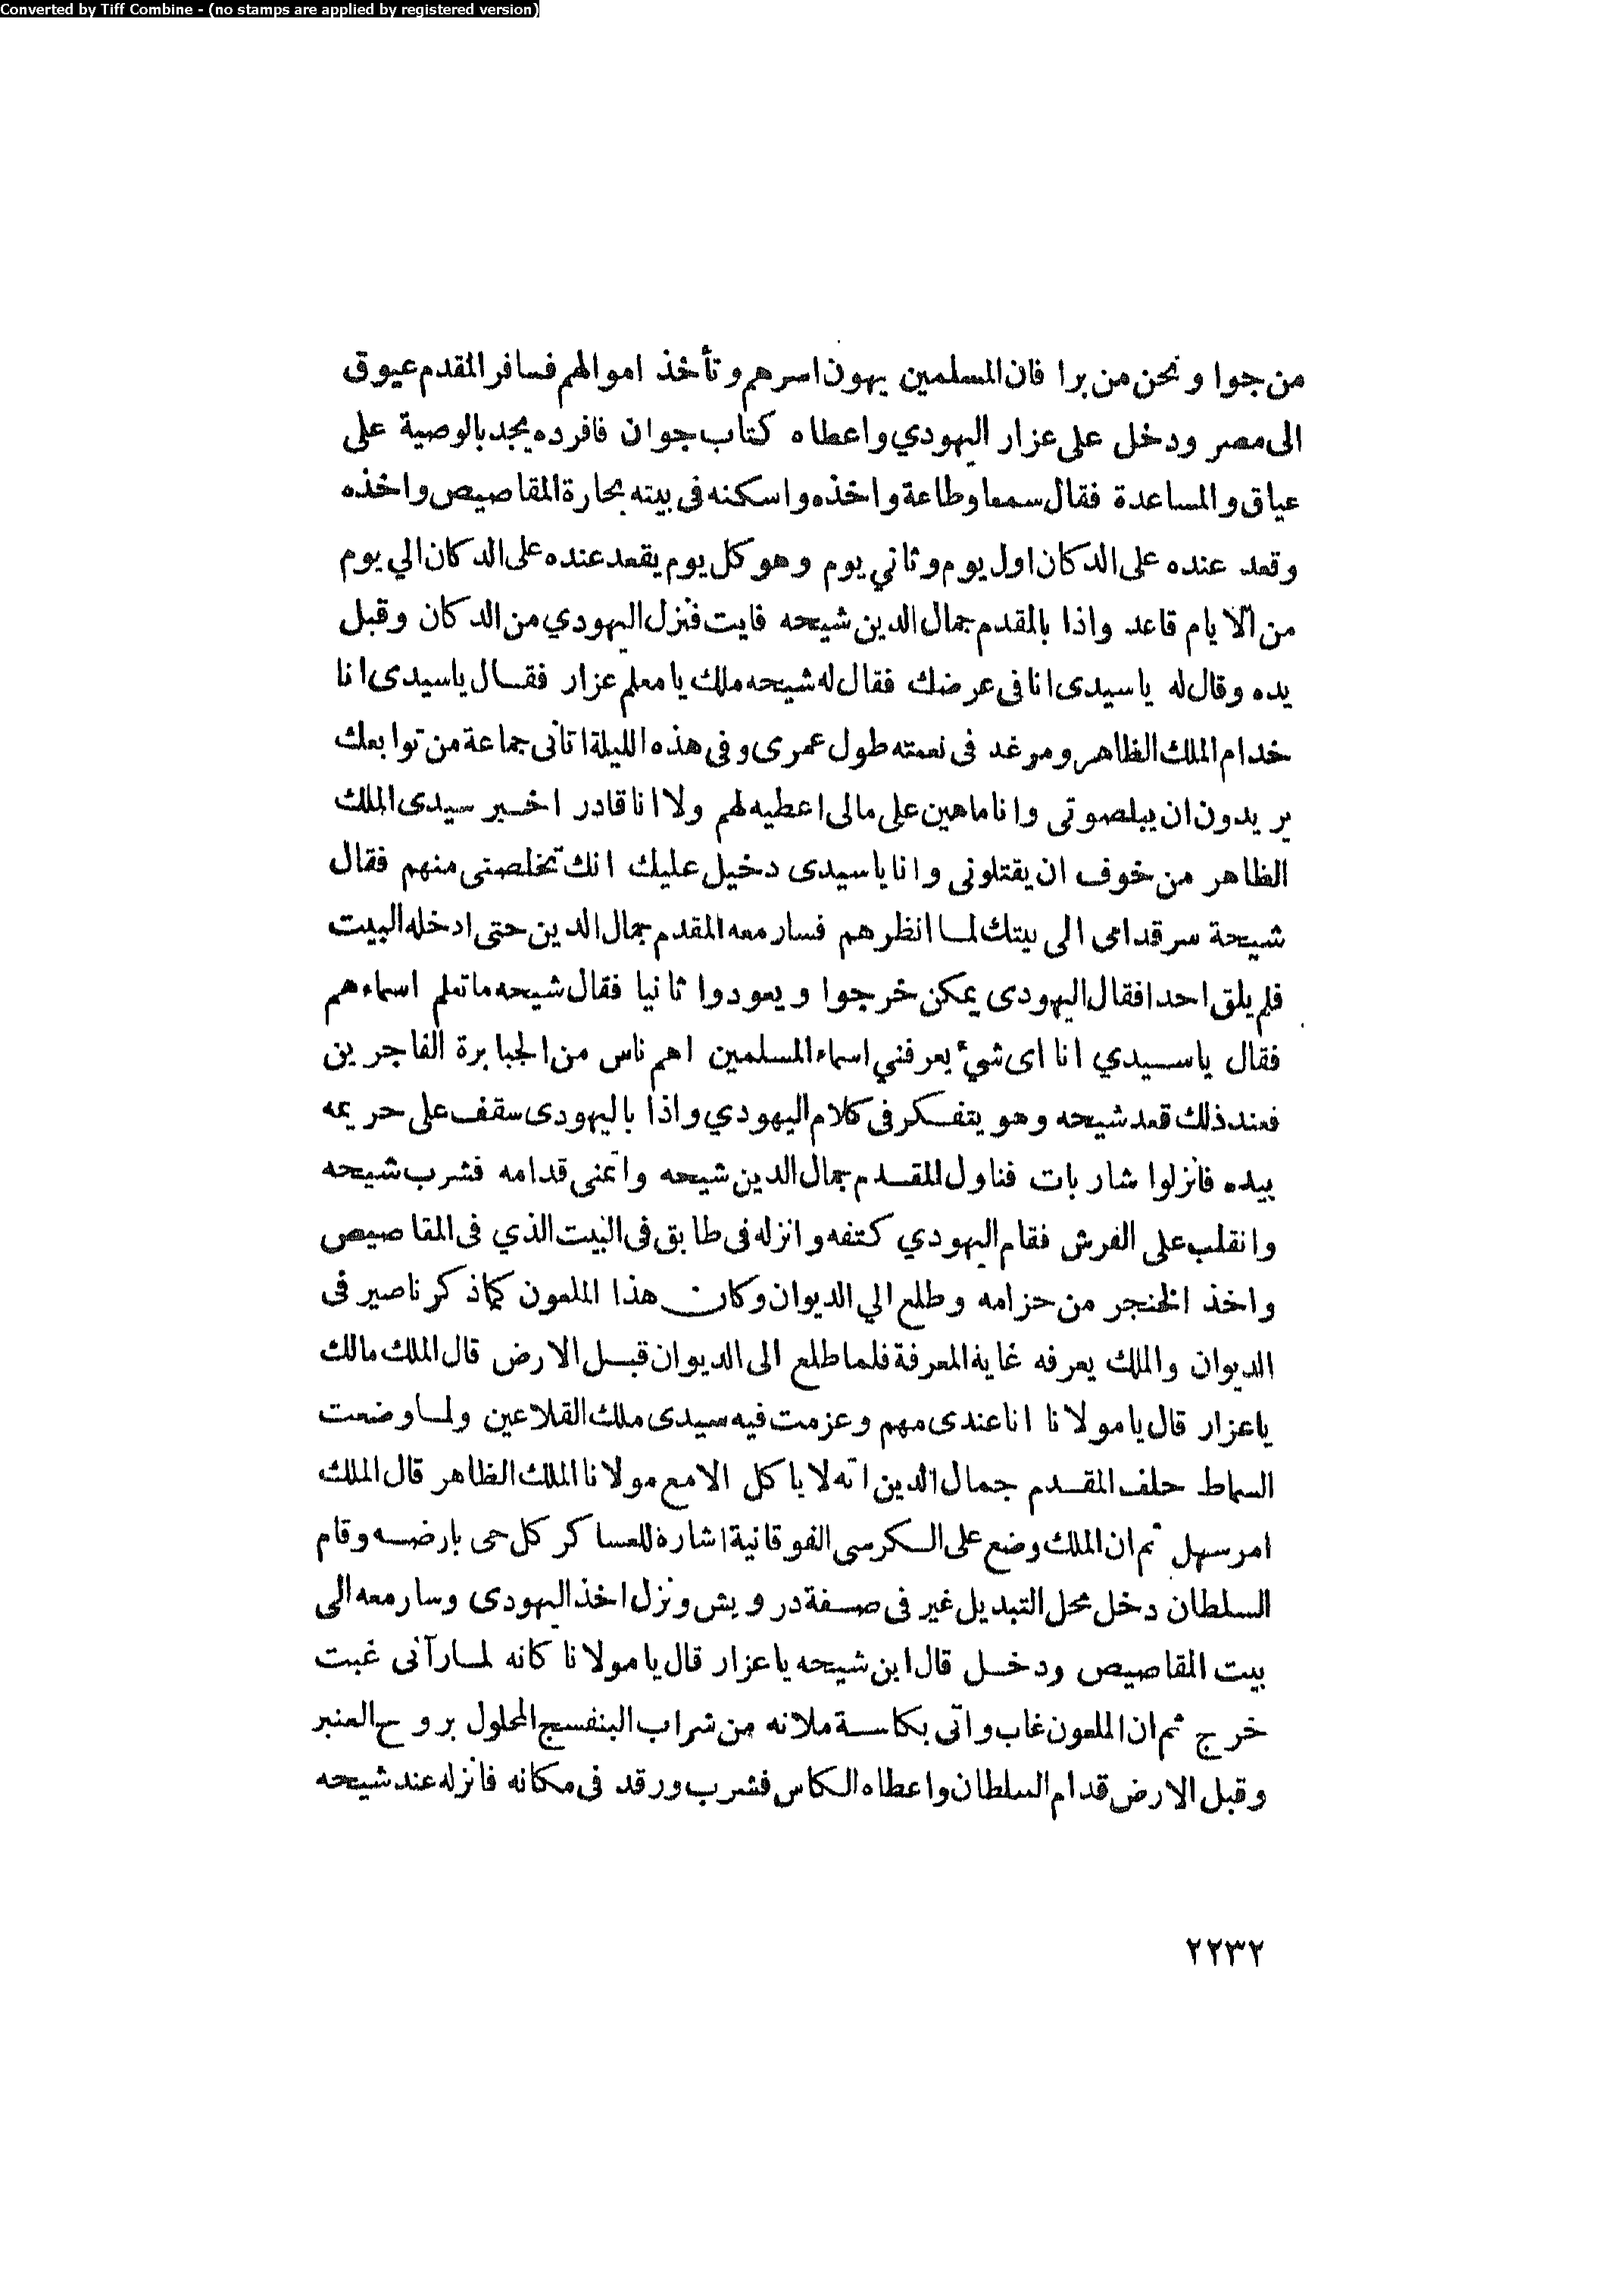 Converted by Tiff Combine - (no stamps are applied by registered version)
من جوا ونحن من برا فان المسلمين يهون اسرهم وتأخذ اموالهم فسافر المقدم عيوق
الى مصر ودخل على عزار اليهودي واعطاه كتاب جوان فافرده يجد بالوصية على
عياق والمساعدة فقال سمعا وطاعة واخذه واسكنه فى بيته بحارة المقاصيص واخذه
وقعد عنده على الدكان اول يوم وثاني يوم وهو كل يوم يقعد عنده على الدكان الي يوم
من الايام قاعد واذا بالمقدم جمال الدين شيحه فايت فنزل اليهودي من الدكان وقبل
يده وقال له ياسيدى انا فى عرضك فقال له شيحه ملك يا معلم عزار فقال ياسيدى انا
خدام الملك الظاهر ومرغد فى نعمته طول عمرى وفى هذه الليلة اتانى جماعة من توابعك
يريدون ان يبلصوتى وانا ماهين على مالى اعطيه لهم ولا انا قادر اخبر سيدى الملك
الظاهر من خوف ان يقتلونى وانا ياسيدى دخيل عليك انك تخلصنى منهم فقال
شيحة سر قدامى الى بيتك لما انظرهم فسار معه المقدم جمال الدين حتى ادخله البيت
فلم يلق احدا فقال اليهودى يمكن خرجوا ويعودوا ثانيا فقال شيحه ماتعلم اسماءهم
فقال ياسيدي انا اى شيء يعرفني اسماء المسلمين اهم ناس من الجبابرة الفاجرين
فعند ذلك قعد شيحه وهو يتفكر فى كلام اليهودي واذا باليهودى سقف على حريمه
بيده فانزلوا شاربات فناول للمقدم جمال الدين شيحه واتمنى قدامه فشرب شيحه
وانقلب على الفرش فقام اليهودي كتفه وانزله فى طابق فى البيت الذي فى المقاصيص
واخذ الخنجر من حزامه وطلع الي الديوان وكان هذا الملعون كماذكرنا صير فى
الديوان والملك يعرفه غاية المعرفة فلما طلع الى الديوان قبل الارض قال الملك مالك
ياعزار قال يا مولانا انا عندى مهم وعزمت فيه سيدى ملك القلاعين ولما وضعت
السماط حلف المقدم جمال الدين انه لا ياكل الا مع مولانا الملك الظاهر قال الملك
امر سهل ثم ان الملك وضع على الكرسى الفوقانية اشارة للعساكر كل حى بارضه وقام
السلطان دخل محل التبديل غير فى صفة درويش ونزل اخذ اليهودى وسار معه الى
بيت المقاصيص ودخل قال ابن شيحه ياعزار قال يا مولانا كانه لما رآنى غبت
خرج ثم ان الملعون غاب واتى بكاسة ملانه من شراب البنفسج المحلول بروح العنبر
وقبل الارض قدام السلطان واعطاه الكاس فشرب ورقد فى مكانه فانزله عند شيحه
٢٢٣٢